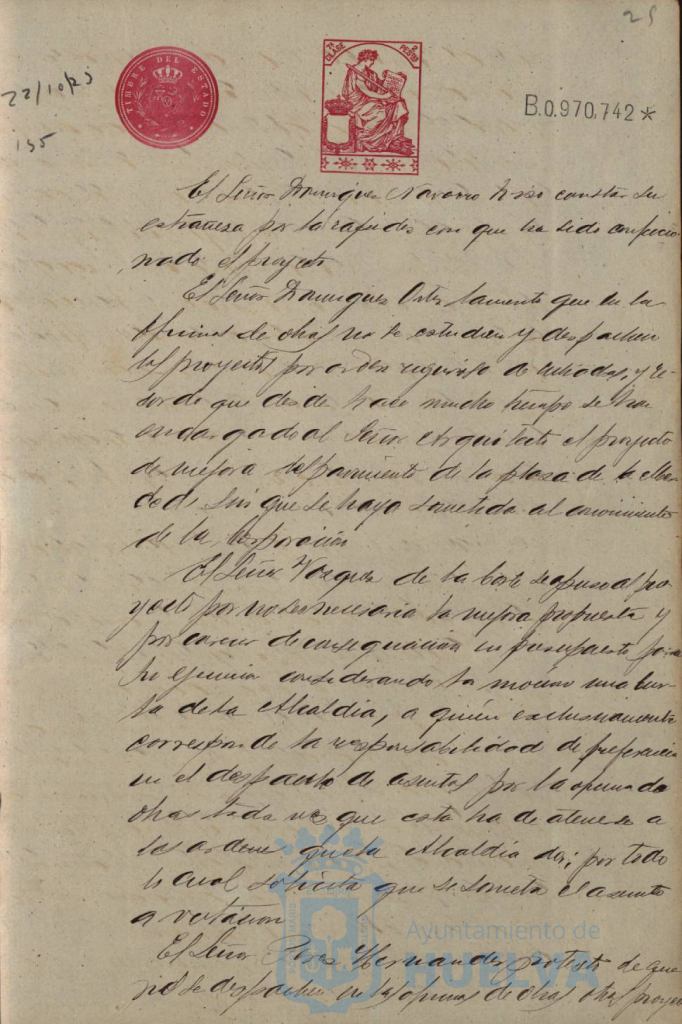 25
22/10/23
155
TIMBRE DEL ESTADO
7ª CLASE 2 PESTAS
B.0.970,742*
El Señor Dominguez Navarro hizo constar su
estrañeza por la rapidez con que ha sido confeccio
nado el proyecto
El Señor Dominguez Ortiz lamenta que en la
oficina de obras no se estudien y despachen
los proyectos por orden riguroso de
que desde hace mucho tiempo se
encargado al Señor Arquitecto el proyecto
de mejora del pavimento de la plaza de la Mer
ced sin que se haya sometido al conocimiento
de la Corporación
El Señor Vazquez de la Corte se opuso al pro
yecto por no ser necesaria la mejora propuesta y
por carecer de consignación en presupuesto para
considerando la moción una bur
la de la Alcaldía, a quien exclusivamente
corresponde la responsabilidad de preferencia
en el despacho de asuntos por la oficina de
obras toda vez que esta ha de atenerse a
las ordenes que la Alcaldía dé; por todo
lo cual solicita que se someta el asunto
a votación
El Señor Perez Hernandez protesta de que
no se despachen en las oficinas de obras otros proyec
Ayuntamiento de
HUELVA